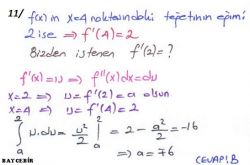 11/ f(x) in x=4 noktasındaki teğetinin eğimi
2 ise ⇒ f'(4)=2
Bizden istenen f'(2)=?
f'(x)=u ⇒ f''(x)dx=du
x=2 ⇒ u=f'(2)=a olsun
x=4 ⇒ u=f'(4)=2
∫ₐ² u.du = u²/2 |ₐ² = 2 - a²/2 = -16
⇒ a=76
CEVAP:B
BAYÇEBİR